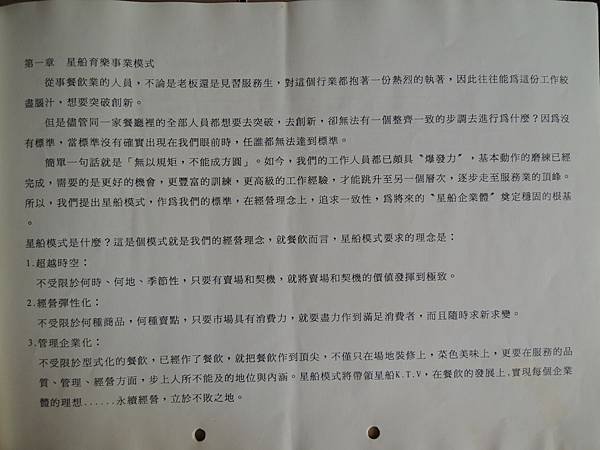 第一章　星船育樂事業模式
從事餐飲業的人員，不論是老板還是見習服務生，對這個行業都抱著一份熱烈的執著，因此往往能為這份工作絞
盡腦汁，想要突破創新。
但是儘管同一家餐廳裡的全部人員都想要去突破，去創新，卻無法有一個整齊一致的步調去進行為什麼？因為沒
有標準，當標準沒有確實出現在我們眼前時，任誰都無法達到標準。
簡單一句話就是「無以規矩，不能成方圓」。如今，我們的工作人員都已頗具〝爆發力〞，基本動作的磨練已經
完成，需要的是更好的機會，更豐富的訓練，更高級的工作經驗，才能跳升至另一個層次，逐步走至服務業的頂峰。
所以，我們提出星船模式，作為我們的標準，在經營理念上，追求一致性，為將來的〝星船企業體〞奠定穩固的根基
。
星船模式是什麼？這是個模式就是我們的經營理念，就餐飲而言，星船模式要求的理念是：
1.超越時空：
不受限於何時、何地、季節性，只要有賣場和契機，就將賣場和契機的價值發揮到極致。
2.經營彈性化：
不受限於何種商品，何種賣點，只要市場具有消費力，就要盡力作到滿足消費者，而且隨時求新求變。
3.管理企業化：
不受限於型式化的餐飲，已經作了餐飲，就把餐飲作到頂尖，不僅只在場地裝修上，菜色美味上，更要在服務的品
質、管理、經營方面，步上人所不能及的地位與內涵。星船模式將帶領星船K.T.V，在餐飲的發展上.實現每個企業
體的理想......永續經營，立於不敗之地。